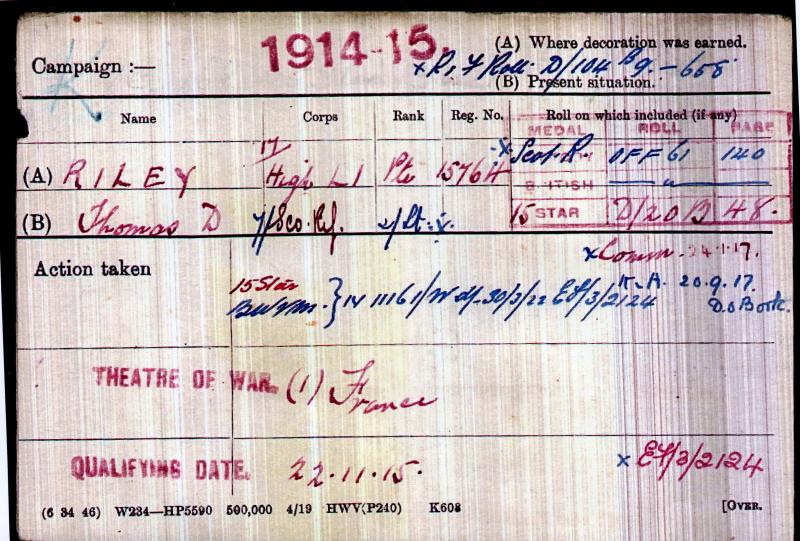 1914-15.
(A) Where decoration was earned.
Campaign :—
x R. F Roll. D/104 Bg. - 658
(B) Present situation.
Name Corps Rank Reg. No. Roll on which included (if any)
MEDAL ROLL PAGE
17
(A) RILEY High L I Pte 15764 x Scot. R. OFF 61 140
BRITISH — " —
(B) Thomas D Sco. Rif. 2/Lt. x 15 STAR D/20 B 48.
Action taken x Comm. 24.1.17.
15 Star K. A. 20.9.17.
BWVM. } 14 11161/W df 30/3/22 EF/3/2124 D.O Book.
THEATRE OF WAR. (1) France
QUALIFYING DATE. 22.11.15. x EF/3/2124
(6 34 46) W234—HP5590 590,000 4/19 HWV(P240) K608 [OVER.